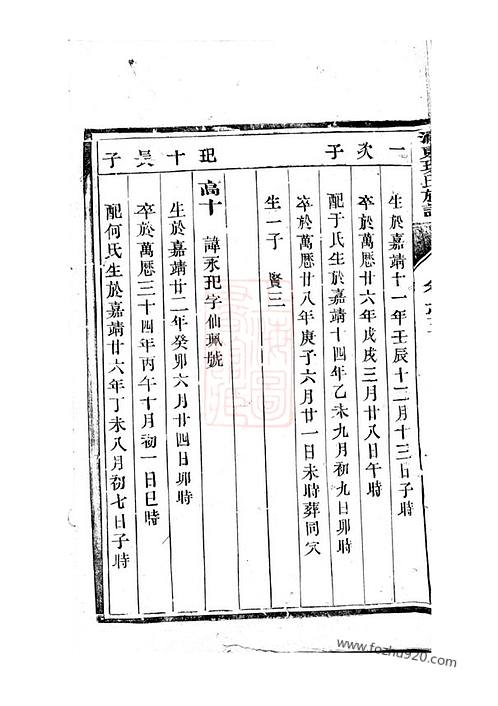 一次子
生於嘉靖十一年壬辰十二月十三日子時
卒於萬厯廿六年戊戌三月廿八日午時
配于氏生於嘉靖十四年乙未九月初九日卯時
卒於萬厯廿八年庚子六月廿一日未時葬同穴
生一子 賢三
玘十長子
高十 諱永玘字仙珮號
生於嘉靖廿二年癸卯六月廿四日卯時
卒於萬厯三十四年丙午十月初一日巳時
配何氏生於嘉靖廿六年丁未八月初七日子時
www.fozhu920.com